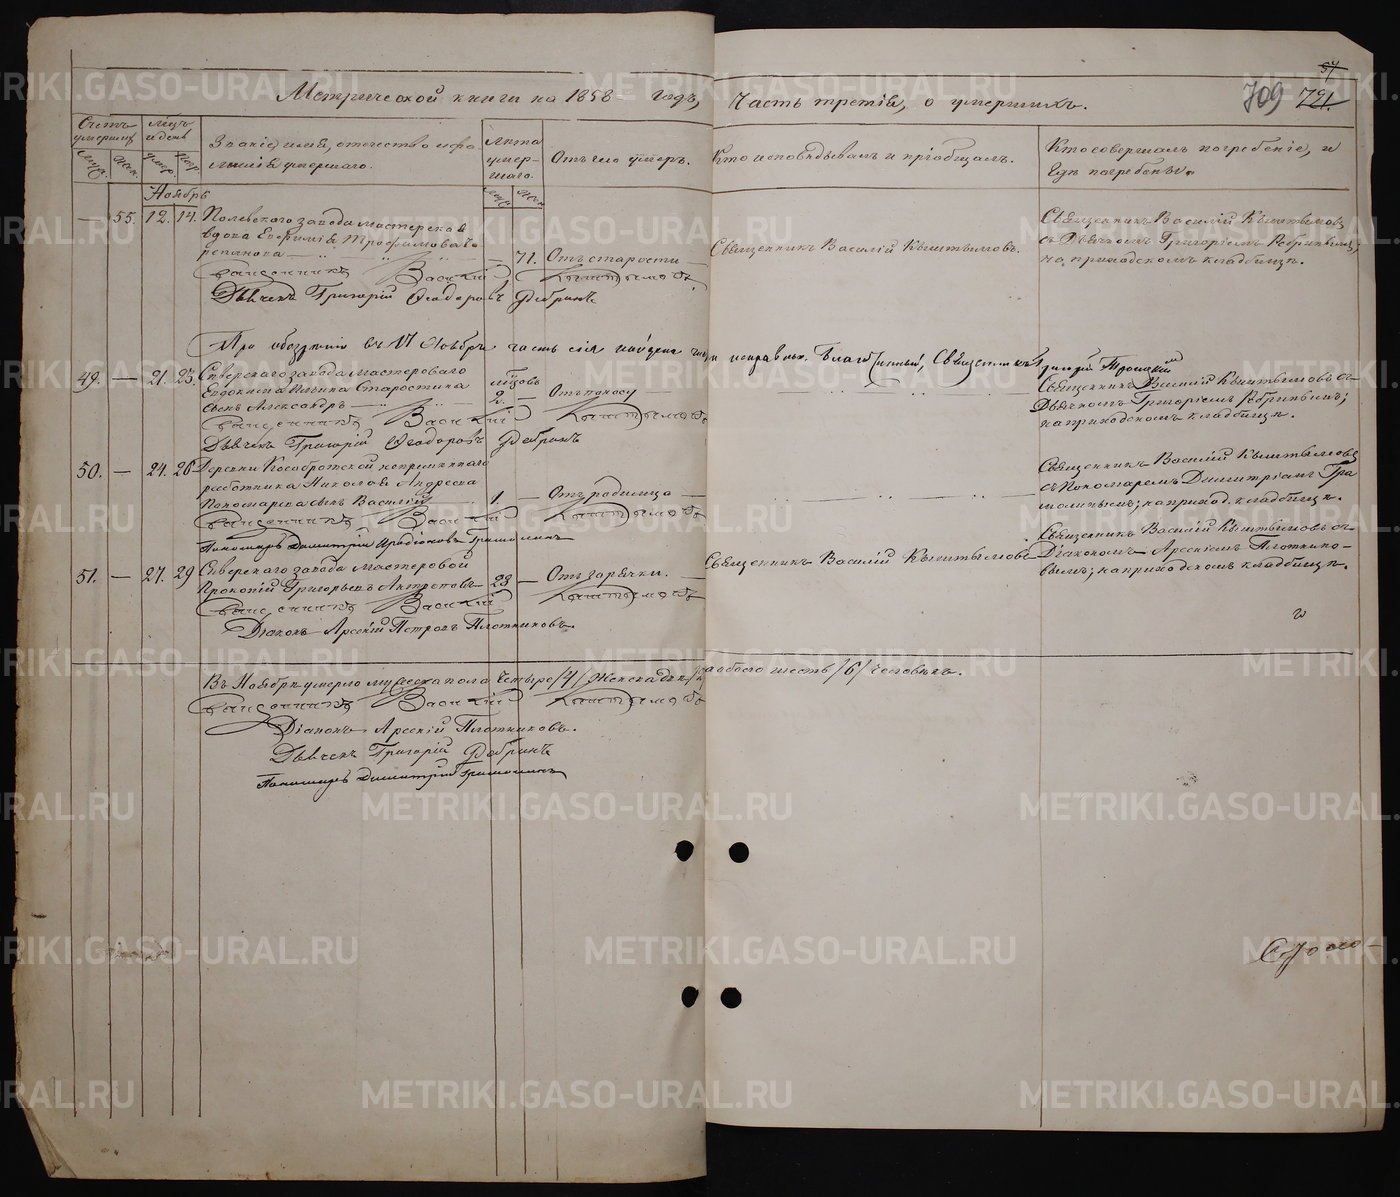 57
709 721
Метрической книги на 1858 годъ, Часть третія, о умершихъ.
Счетъ умершихъ
Муж. Жен.
Мѣсяцъ и день
умер. погр.
Званіе, имя, отчество и фамилія умершаго.
Лѣта умершаго.
Муж. Жен.
Отъ чего умеръ.
Кто исповѣдывалъ и пріобщалъ.
Кто совершалъ погребеніе, и гдѣ погребены.
Ноябрь
— 55. 12. 14. Полевскаго завода мастерская
вдова Евфимія Трофимова
71. Отъ старости
Священникъ Василій Кыштымовъ.
Священникъ Василій Кыштымовъ
съ Дьячкомъ Григоріемъ Ребринымъ;
на приходскомъ кладбищѣ.
Священникъ Василій Кыштымовъ
Дьячекъ Григорій Ѳеодоровъ Ребринъ
При обозрѣніи въ 17 Ноябрѣ часть сія найдена исправною. Благочинный, Священникъ
49. — 21. 23. Сѣверскаго завода мастероваго
Евдокима Ильина Старостина
сынъ Александръ
мѣсяцовъ 2. —
Отъ поносу
Священникъ Василій Кыштымовъ съ
Дьячкомъ Григоріемъ Ребринымъ;
на приходскомъ кладбищѣ.
Священникъ Василій Кыштымовъ
Дьячекъ Григорій Ѳеодоровъ Ребринъ
50. — 24. 26 Деревни Кособродской непремѣннаго
работника Николая Андреева
Пономарева сынъ Василій
1. — Отъ родимца
Священникъ Василій Кыштымовъ
съ Пономаремъ Димитріемъ
на приход. кладбищѣ.
Священникъ Василій Кыштымовъ
Пономарь Димитрій
51. — 27. 29 Сѣверскаго завода мастеровой
Прокопій Григорьевъ Антроповъ
23 — Отъ горячки.
Священникъ Василій Кыштымовъ
Священникъ Василій Кыштымовъ съ
Діакономъ Арсеніемъ Плотнико-
вымъ; на приходскомъ кладбищѣ.
Священникъ Василій Кыштымовъ
Діаконъ Арсеній Петровъ Плотниковъ.
Въ Ноябрѣ умерло мужеска пола четыре /4/ Женска два /2/ а обоего шесть /6/ человѣкъ.
Священникъ Василій Кыштымовъ
Діаконъ Арсеній Плотниковъ.
Дьячекъ Григорій Ребринъ
Пономарь Димитрій
METRIKI.GASO-URAL.RU